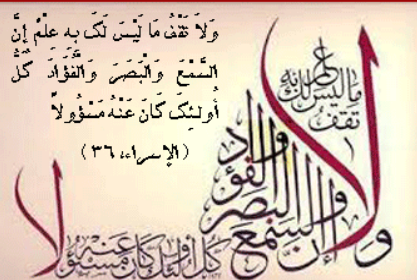 وَلاَ تَقْفُ مَا لَيْسَ لَكَ بِهِ عِلْمٌ إِنَّ
السَّمْعَ وَالْبَصَرَ وَالْفُؤَادَ كُلُّ
أُولـئِكَ كَانَ عَنْهُ مَسْؤُولاً
(الإسراء، ٣٦)
ولا تقف ما ليس لك به علم
إن السمع والبصر والفؤاد
كل أولئك كان عنه مسئولا